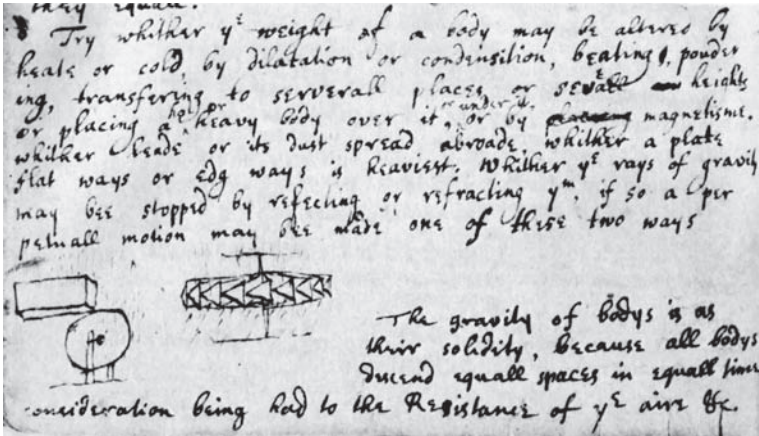 they equall.
Try whither yᵉ weight of a body may be altered by
heate or cold, by dilatation or condensition, beating, powder
ing, transfering to serverall places or sevᵉall heights
or placing a hot or heavy body over it, or under it, or by magnetisme.
whither leade or its dust spread abroade, whither a plate
flat ways or edg ways is heaviest. Whither yᵉ rays of gravity
may bee stopped by reflecting or refracting yᵐ, if so a per
petuall motion may bee made one of these two ways
The gravity of bodys is as
their solidity, because all bodys
descend equall spaces in equall times
consideration being had to the Resistance of yᵉ aire &c.